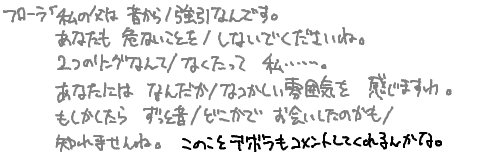 フローラ「私の父は 昔から/強引なんです。
あなたも 危ないことを/しないでくださいね。
2つのリングなんて/なくたって 私……。
あなたには なんだか/なつかしい雰囲気を 感じますわ。
もしかしたら ずっと昔/どこかで お会いしたのかも/
知れませんね。 このことデボラもコメントしてくれるんかな。